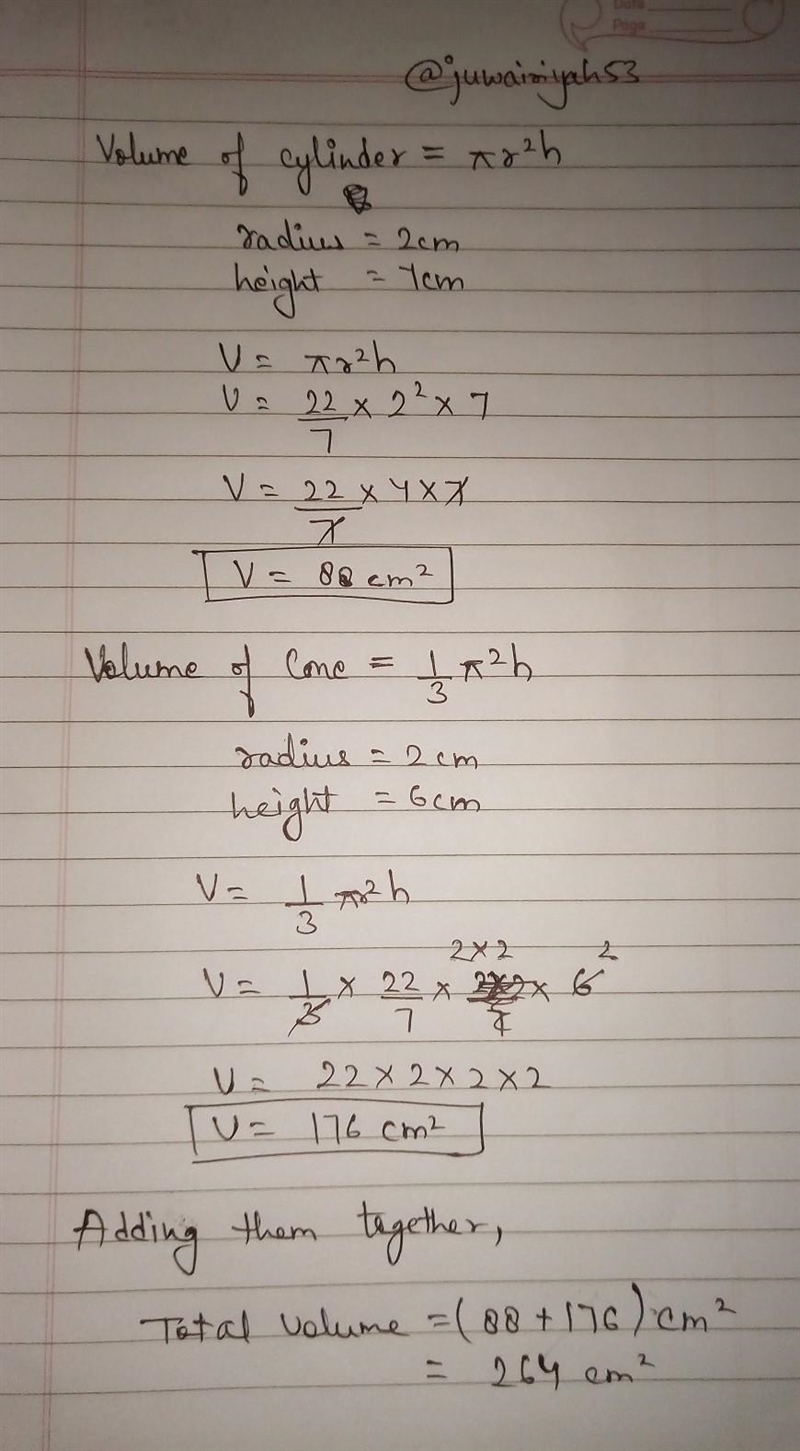 Date
Page
@juwairiyah53
Volume of cylinder = πr²h
radius = 2cm
height = 7cm
V = πr²h
V = 22/7 × 2² × 7
V = 22/7 × 4 × 7
V = 88 cm²
Volume of Cone = 1/3 π²h
radius = 2cm
height = 6cm
V = 1/3 πr²h
V = 1/3 × 22/7 × 2×2 × 6 2
V = 22 × 2 × 2 × 2
V = 176 cm²
Adding them together,
Total volume = (88 + 176) cm²
= 264 cm²